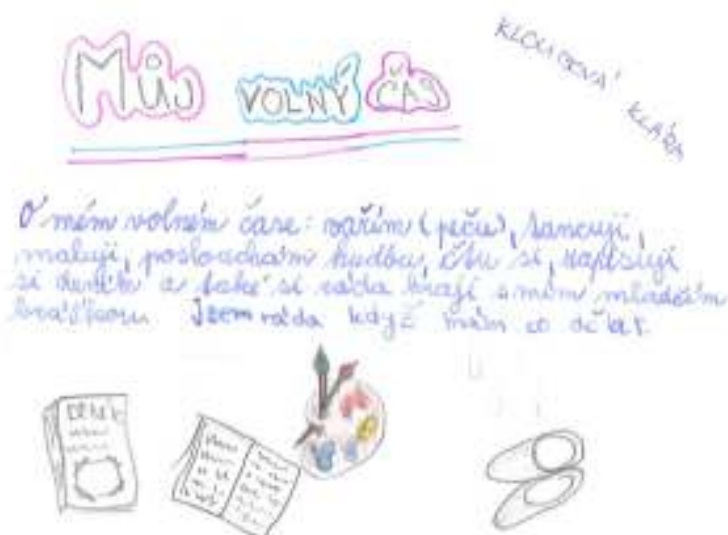 Můj VOLNÝ ČAS
KLÁRA
O mém volném čase: vařím (peču), tancuji,
maluji, poslouchám hudbu, čtu si, zapisuji
si deník a také si ráda hraji s mím mladším
bráškou. Jsem ráda když mám co dělat.
DENÍK